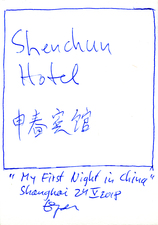 Shenchun
Hotel
申春宾馆
"My First Night in China"
Shanghai 24 V 2018